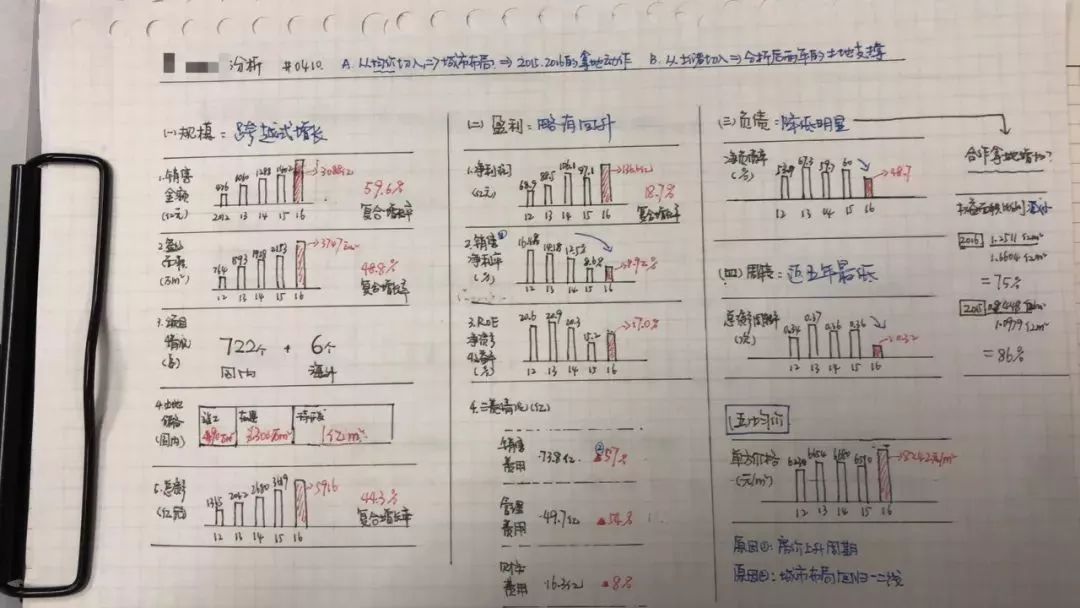 分析 #0410 A. 从均价切入⇒城市布局⇒2015.2016的拿地动作 B. 从土储切入⇒分析后两年的土地支撑
(一)规模：跨越式增长
1.销售金额(亿元)
476 1060 1288 1402 3088亿
2012 13 14 15 16
59.6%
复合增长率
2.
(万m²)
764 1593 1928 2153 3747万m²
12 13 14 15 16
48.8%
复合增长率
3.项目
(个)
722个 + 6个
国内 海外
4.土地储备(国内)
竣工 在建 待开发
1亿m²
5.总资产(亿元)
2062 2680 5916
12 13 14 15 16
44.3%
复合增长率
(二)盈利：略有回升
1.净利润(亿元)
68.9 88.5 106.1 97.1 136亿
12 13 14 15 16
18.7%
复合增长率
2.销售净利率(%)
①
8.92%
12 13 14 15 16
3.ROE净资产收益率(%)
20.6 20.9 20.3 15.2 17.0%
12 13 14 15 16
4.三费情况(亿)
销售费用 73.8亿 ② ▲57%
管理费用 49.7亿
财务费用 16.3亿 ▲8%
(三)负债：降低明显
净负债率(%)
67.3 60 48.7
12 13 14 15 16
合作拿地增加?
2016
1.2511亿m²
1.6604亿m²
=75%
2015
1.0979亿m²
=86%
(四)周转：近五年最低
总资产周转率(次)
0.34 0.37 0.36 0.36 0.32
12 13 14 15 16
(五)均价
单方价格(元/m²)
6230 6654 6680 6510 8242元/m²
12 13 14 15 16
原因①：房价上升周期
原因②：城市布局回归一二线